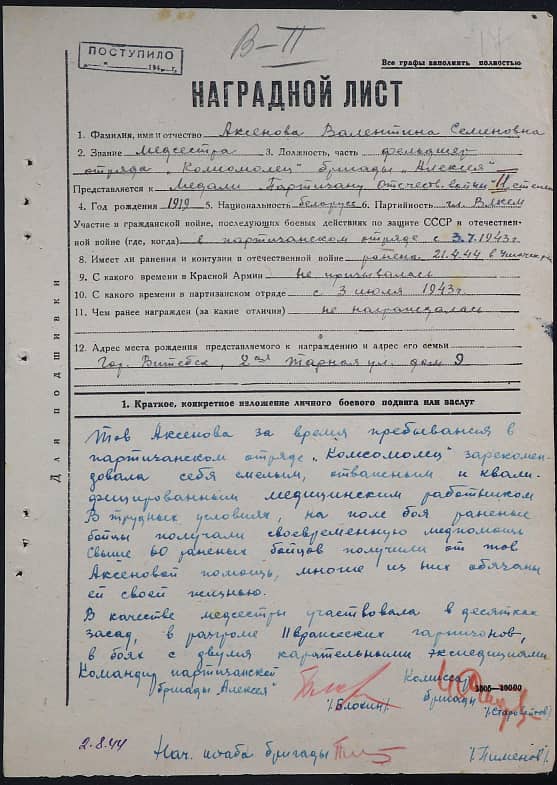 ПОСТУПИЛО
194 г.
В-П
Все графы заполнить полностью
НАГРАДНОЙ ЛИСТ
1. Фамилия, имя и отчество Аксенова Валентина Семеновна
2. Звание Медсестра 3. Должность, часть фельдшер
отряда „Комсомолец" бригады „Алексея"
Представляется к медали Партизану Отечеств. войны II степени
4. Год рождения 1919 5. Национальность белорусс 6. Партийность чл. ВЛКСМ
Участие и гражданской войне, последующих боевых действиях по защите СССР и отечествен-
ной войне (где, когда) в партизанском отряде с 3.7.1943г
8. Имеет ли ранения и контузии в отечественной войне ранена 21.4.44 в
9. С какого времени в Красной Армии не призывалась
10. С какого времени в партизанском отряде с 3 июля 1943г.
11. Чем ранее награжден (за какие отличия) не награждалась
12. Адрес места рождения представляемого к награждению и адрес его семьи
Гор. Витебск, 2ая Тарная ул. дом 9
Для подшивки
1. Краткое, конкретное изложение личного боевого подвига или заслуг
Тов Аксенова за время пребывания в
партизанском отряде „Комсомолец" зарекомен-
довала себя смелым, отважным и квали-
фицированным медицинским работником
В трудных условиях, на поле боя раненые
бойцы получали своевременную медпомощь
Свыше 60 раненых бойцов получили от тов
Аксеновой помощь, многие из них обязаны
ей своей жизнью.
В качестве медсестры участвовала в десятках
засад, в разгроме 11 вражеских гарнизонов,
в боях с двумя карательными экспедициями
Командир партизанской Комиссар
бригады „Алексея" бригады
/Блохин/ /Старовойтов/
2.8.44 Нач. штаба бригады /Пименов/.